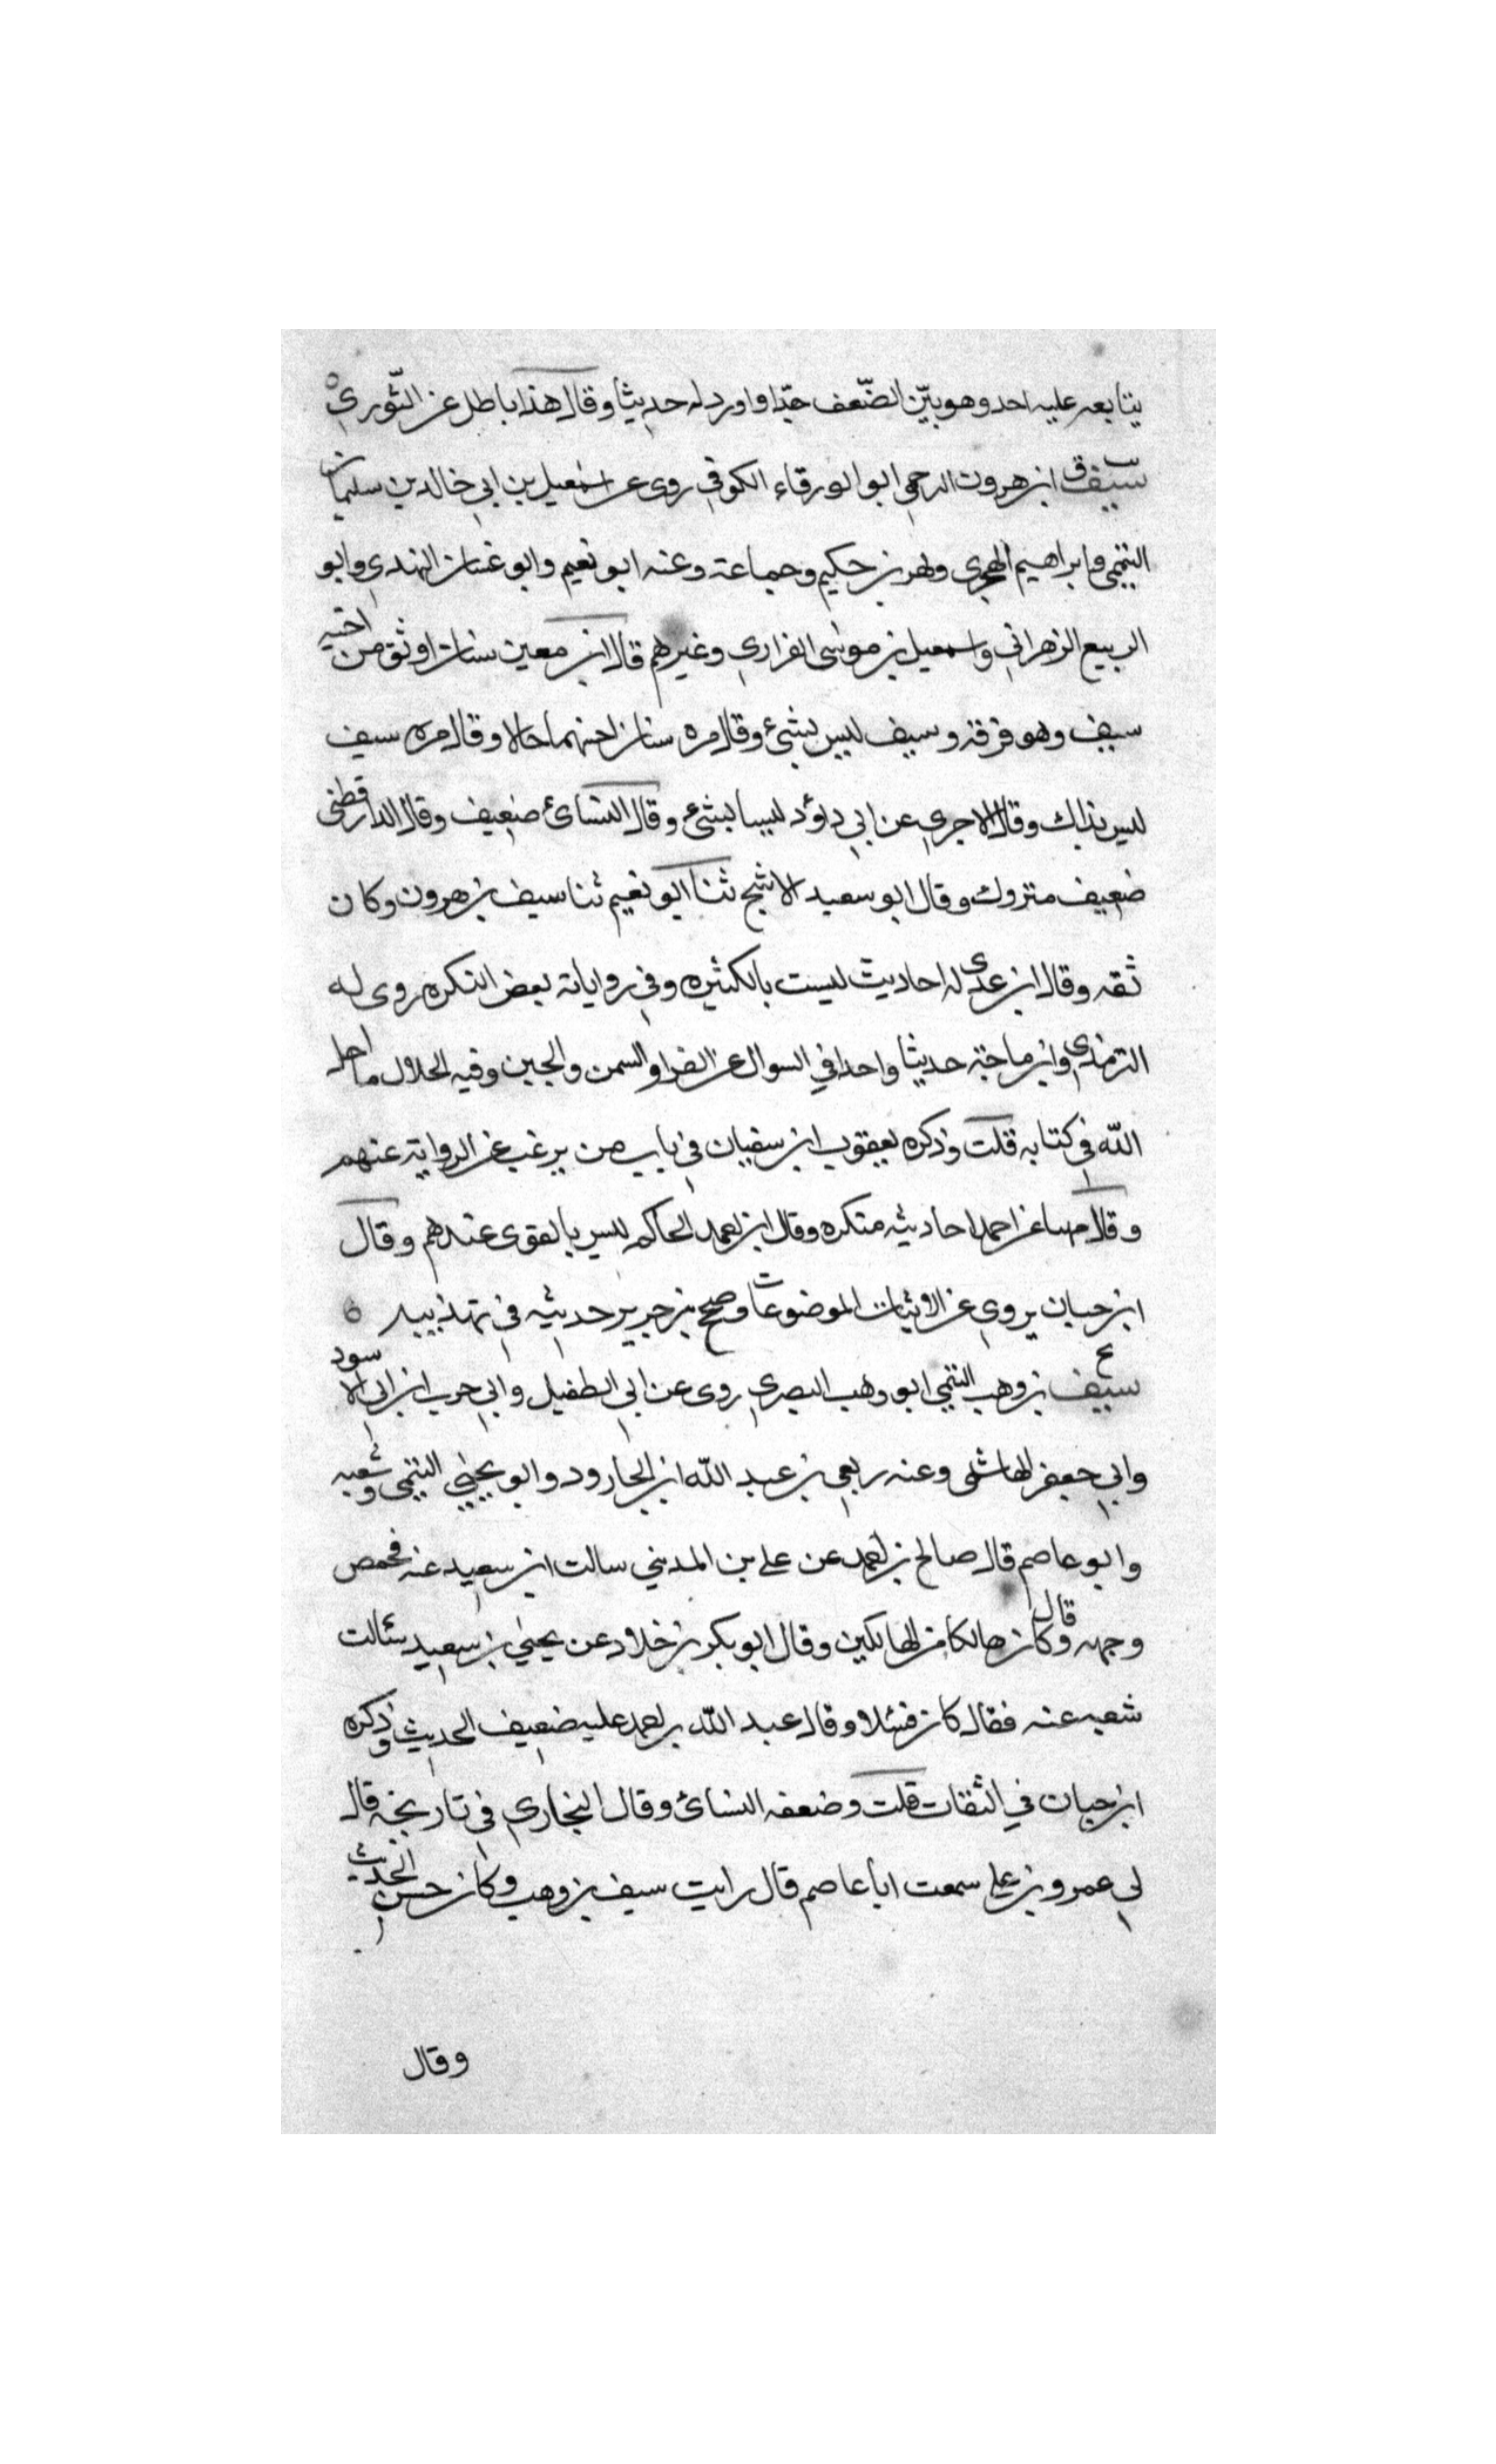 يتابعه عليه احد وهو بيّن الضّعف جدّا واورد له حديثا وقال هذا باطل عن الثّوري ه
سيف ابن هرون البرجمي ابو الورقاء الكوفي روى عن اسمعيل بن ابي خالد بن سليمان
التيمي وابراهيم الهجري وبهز بن حكيم وجماعة وعنه ابو نعيم وابو غسان النهدي وابو
الربيع الزهراني واسمعيل بن موسى الفزاري وغيرهم قال ابن معين سنان اوثق من اخيه
سيف وهو فوقه وسيف ليس بشئ وقال مره سنان احسنهما حالا وقال مره سيف
ليس بذاك وقال الاجري عن ابي داؤد ليسا بشئ وقال النسائ ضعيف وقال الدارقطني
ضعيف متروك وقال ابو سعيد الاشج ثنا ابو نعيم ثنا سيف بن هرون وكان
ثقه وقال ابن عدى له احاديث ليست بالكثيره وفي رواياته بعض النكره روى له
الترمذي وابن ماجة حديثا واحدا في السوال عن الفرا والسمن والجبن وفيه الحلال ما احل
الله في كتابه قلت وذكره يعقوب ابن سفيان في باب من يرغب عن الرواية عنهم
وقال مهنا عن احمد احاديثه منكره وقال ابو احمد الحاكم ليس بالقوى عندهم وقال
ابن حبان يروي عن الاثبات الموضوعات وصحح بن جرير حديثه في تهذيبه ه
ع سيف بن وهب التيمي ابو وهب البصري روى عن ابي الطفيل وابي حرب ابن ابي الاسود
وابي جعفر الهاشمي وعنه ربعي بن عبد الله ابن الجارود وابو يحيي التيمي وشعبه
وابو عاصم قال صالح بن احمد عن علي بن المديني سالت ابن سعيد عنه فحمص
وجهه وقال كان هالكا من الهالكين وقال ابو بكر بن خلاد عن يحيي بن سعيد سئالت
شعبه عنه فقال كان فسلا وقال عبد الله بن احمد عليه ضعيف الحديث وذكره
ابن حبان في الثقات قلت وضعفه النسائ وقال البخاري في تاريخه قال
لي عمرو بن علي سمعت ابا عاصم قال رايت سيف بن وهب وكان حسن الحديث
وقال